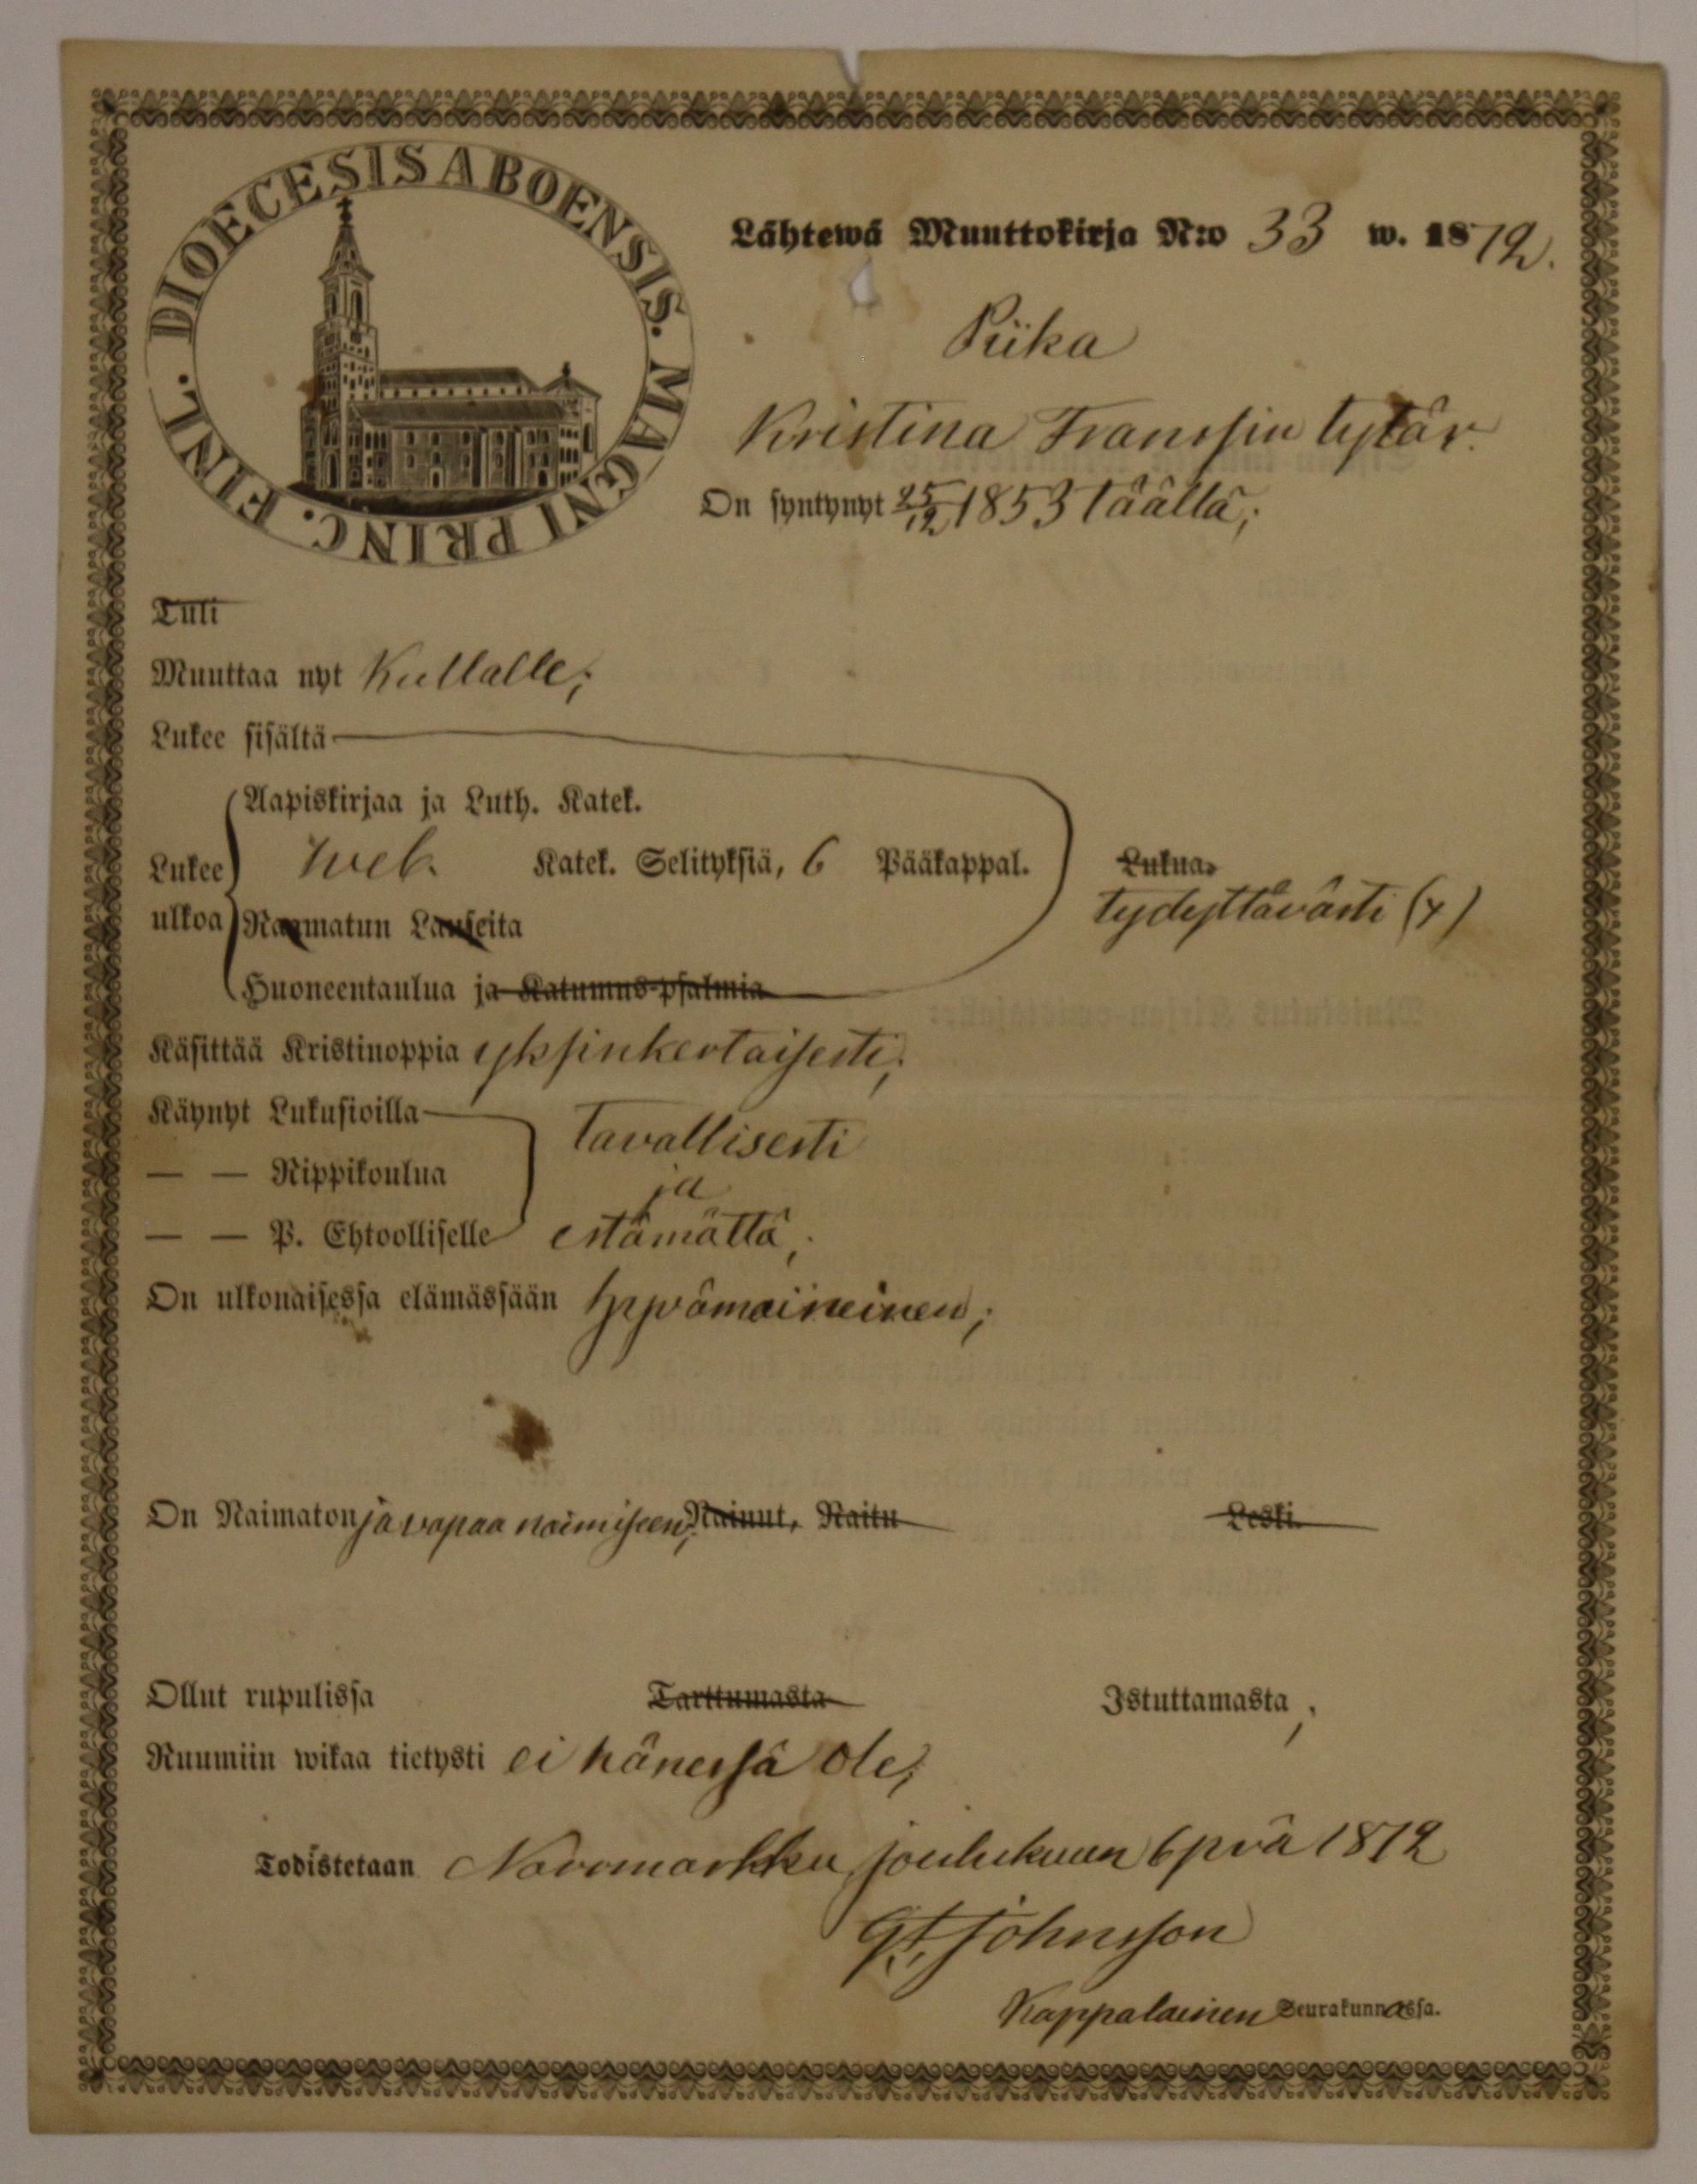 DIOECESIS ABOENSIS. MAGNI PRINC. FINL.
Lähtewä Muuttokirja N:o 33 w. 1872.
Piika
Kristina Franssin tytär.
On syntynyt 25/12 1853 täällä;
Tuli
Muuttaa nyt Kullalle;
Lukee sisältä
Aapiskirjaa ja Luth. Katek.
Lukee ulkoa
Katek. Selityksiä, 6 Pääkappal.
Lukua.
tydyttävästi (y)
Raamatun Lauseita
Huoneentaulua ja Katumus-psalmia
Käsittää Kristinoppia yksinkertaisesti;
Käynyt Lukusioilla
tavallisesti
— — Rippikoulua
ja
— — P. Ehtoolliselle estämättä;
On ulkonaisessa elämässään hyvämaineinen;
On Naimaton ja vapaa naimiseen; Nainut, Naitu Leski.
Ollut rupulissa Tarttumasta Istuttamasta;
Ruumiin wikaa tietysti ei hänessä ole;
Todistetaan Noormarkku joulukuun 6 pvä 1872
Johnsson
Kappalainen Seurakunnassa.